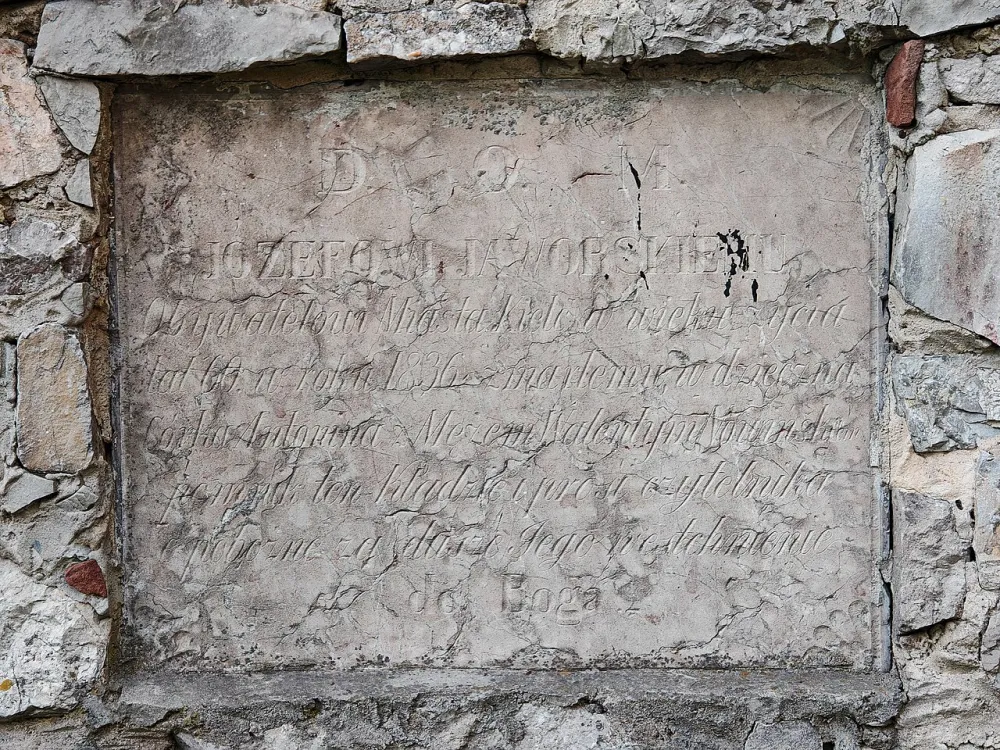 D. O. M
JOZEFOWI JAWORSKIEMU
Obywatelowi Miasta Kielc w wieku życia
lat 60 w roku 1836 zmarłemu, wdzięczna
Córka Antonina z Mężem Walentym
pomnik ten kładzie i prosi czytelnika
o pobożne za duszę Jego westchnienie
do Boga